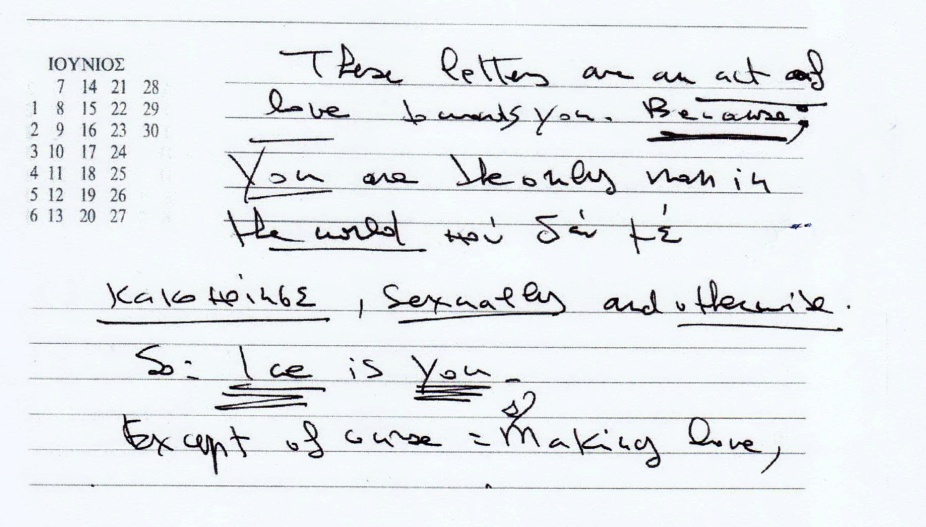 ΙΟΥΝΙΟΣ
7 14 21 28
1 8 15 22 29
2 9 16 23 30
3 10 17 24
4 11 18 25
5 12 19 26
6 13 20 27
These letters are an act of
love towards you. Because;
You are the only man in
the world πού δέν μέ
κακοποίησε, sexually and otherwise.
So: Ice is you –
Except of course = Making love,